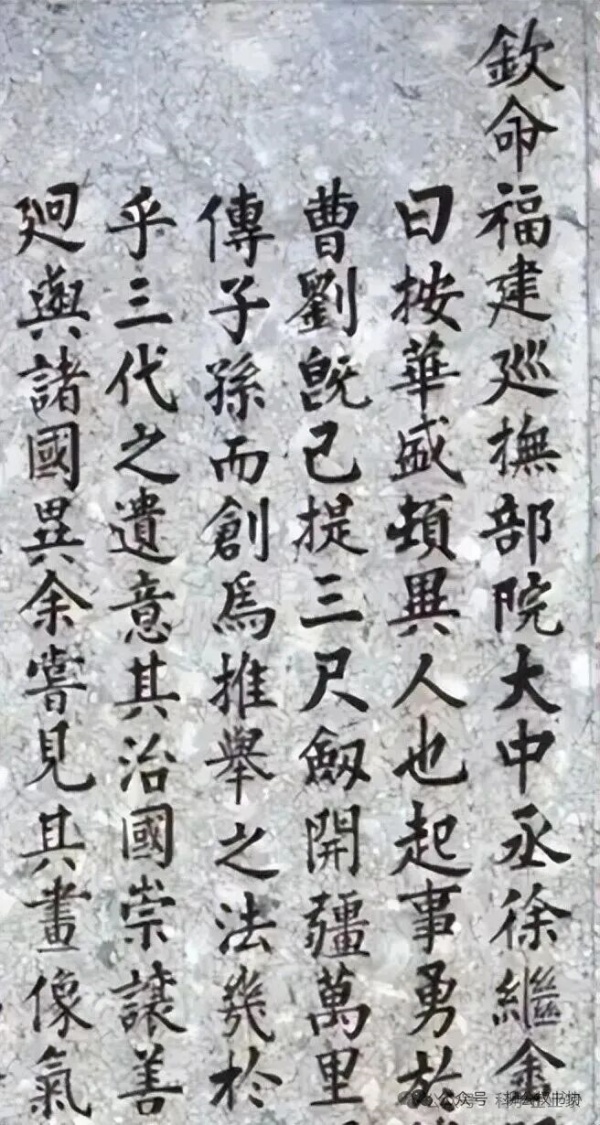 欽命福建巡撫部院大中丞徐繼畬
曰按華盛頓異人也起事勇於
曹劉旣已提三尺劔開疆萬里
傳子孫而創爲推舉之法幾於
乎三代之遺意其治國崇讓善
廻與諸國異余嘗見其畫像氣
公众号